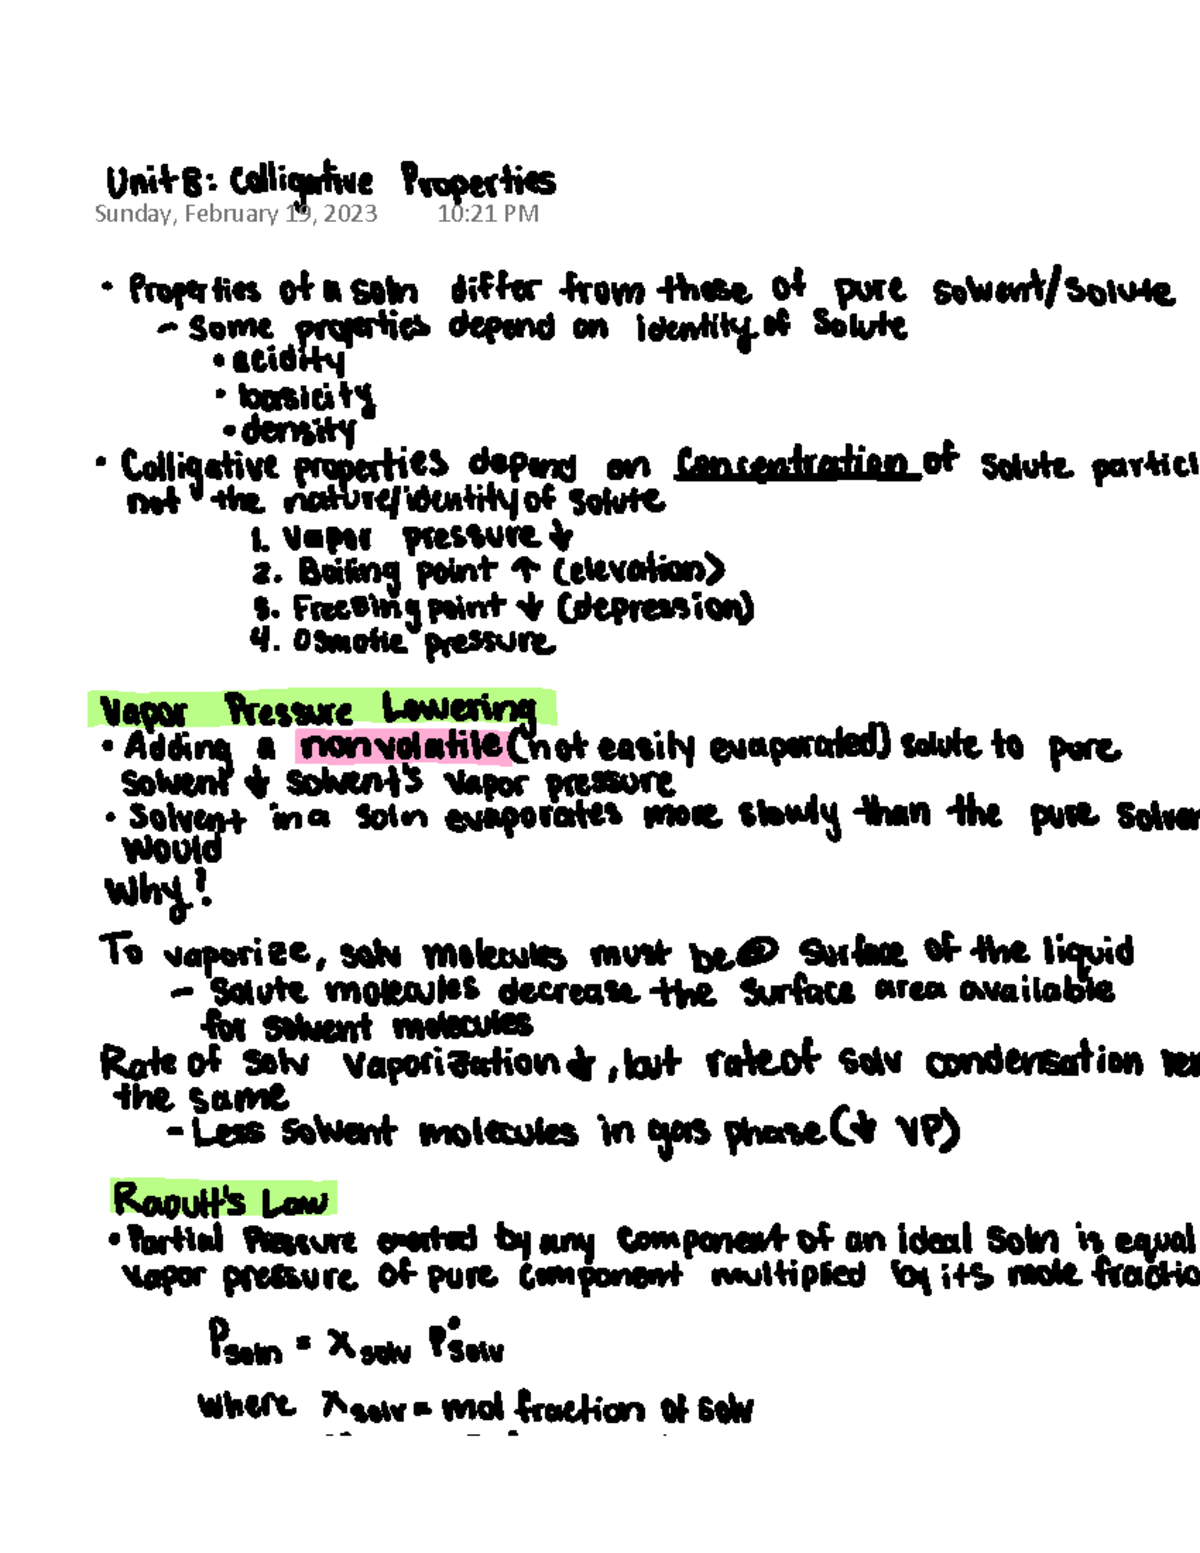 Unit 8: Colligative Properties
Sunday, February 19, 2023 10:21 PM
• Properties of a soln differ from those of pure solvent/solute
- Some properties depend on identity of solute
• acidity
• basicity
• density
• Colligative properties depend on Concentration of solute partic
not the nature/identity of solute
1. Vapor pressure ↓
2. Boiling point ↑ (elevation)
3. Freezing point ↓ (depression)
4. Osmotic pressure
Vapor Pressure Lowering
• Adding a nonvolatile (not easily evaporated) solute to pure
solvent ↓ solvent's vapor pressure
• Solvent in a soln evaporates more slowly than the pure solven
would
Why?
To vaporize, solv molecules must be @ surface of the liquid
- Solute molecules decrease the surface area available
for solvent molecules
Rate of solv vaporization ↓, but rate of solv condensation rem
the same
- Less solvent molecules in gas phase (↓ VP)
Raoult's Law
• Partial Pressure exerted by any component of an ideal soln is equal
vapor pressure of pure component multiplied by its mole fractio
Psoln = Xsolv P°solv
where Xsolv = mol fraction of solv